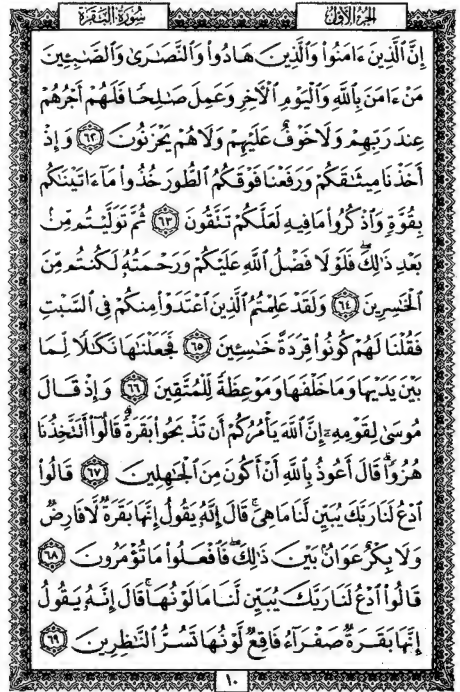 سُورَةُ البَقَرَةِ
الجُزءُ الأَوَّلُ
إِنَّ ٱلَّذِينَ ءَامَنُوا۟ وَٱلَّذِينَ هَادُوا۟ وَٱلنَّصَٰرَىٰ وَٱلصَّٰبِـِٔينَ
مَنْ ءَامَنَ بِٱللَّهِ وَٱلْيَوْمِ ٱلْءَاخِرِ وَعَمِلَ صَٰلِحًا فَلَهُمْ أَجْرُهُمْ
عِندَ رَبِّهِمْ وَلَا خَوْفٌ عَلَيْهِمْ وَلَا هُمْ يَحْزَنُونَ ٦٢ وَإِذْ
أَخَذْنَا مِيثَٰقَكُمْ وَرَفَعْنَا فَوْقَكُمُ ٱلطُّورَ خُذُوا۟ مَآ ءَاتَيْنَٰكُم
بِقُوَّةٍ وَٱذْكُرُوا۟ مَا فِيهِ لَعَلَّكُمْ تَتَّقُونَ ٦٣ ثُمَّ تَوَلَّيْتُم مِّنۢ
بَعْدِ ذَٰلِكَ ۖ فَلَوْلَا فَضْلُ ٱللَّهِ عَلَيْكُمْ وَرَحْمَتُهُۥ لَكُنتُم مِّنَ
ٱلْخَٰسِرِينَ ٦٤ وَلَقَدْ عَلِمْتُمُ ٱلَّذِينَ ٱعْتَدَوْا۟ مِنكُمْ فِى ٱلسَّبْتِ
فَقُلْنَا لَهُمْ كُونُوا۟ قِرَدَةً خَٰسِـِٔينَ ٦٥ فَجَعَلْنَٰهَا نَكَٰلًا لِّمَا
بَيْنَ يَدَيْهَا وَمَا خَلْفَهَا وَمَوْعِظَةً لِّلْمُتَّقِينَ ٦٦ وَإِذْ قَالَ
مُوسَىٰ لِقَوْمِهِۦٓ إِنَّ ٱللَّهَ يَأْمُرُكُمْ أَن تَذْبَحُوا۟ بَقَرَةً ۖ قَالُوٓا۟ أَتَتَّخِذُنَا
هُزُوًا ۖ قَالَ أَعُوذُ بِٱللَّهِ أَنْ أَكُونَ مِنَ ٱلْجَٰهِلِينَ ٦٧ قَالُوا۟
ٱدْعُ لَنَا رَبَّكَ يُبَيِّن لَّنَا مَا هِىَ ۚ قَالَ إِنَّهُۥ يَقُولُ إِنَّهَا بَقَرَةٌ لَّا فَارِضٌ
وَلَا بِكْرٌ عَوَانٌۢ بَيْنَ ذَٰلِكَ ۖ فَٱفْعَلُوا۟ مَا تُؤْمَرُونَ ٦٨
قَالُوا۟ ٱدْعُ لَنَا رَبَّكَ يُبَيِّن لَّنَا مَا لَوْنُهَا ۚ قَالَ إِنَّهُۥ يَقُولُ
إِنَّهَا بَقَرَةٌ صَفْرَآءُ فَاقِعٌ لَّوْنُهَا تَسُرُّ ٱلنَّٰظِرِينَ ٦٩
١٠